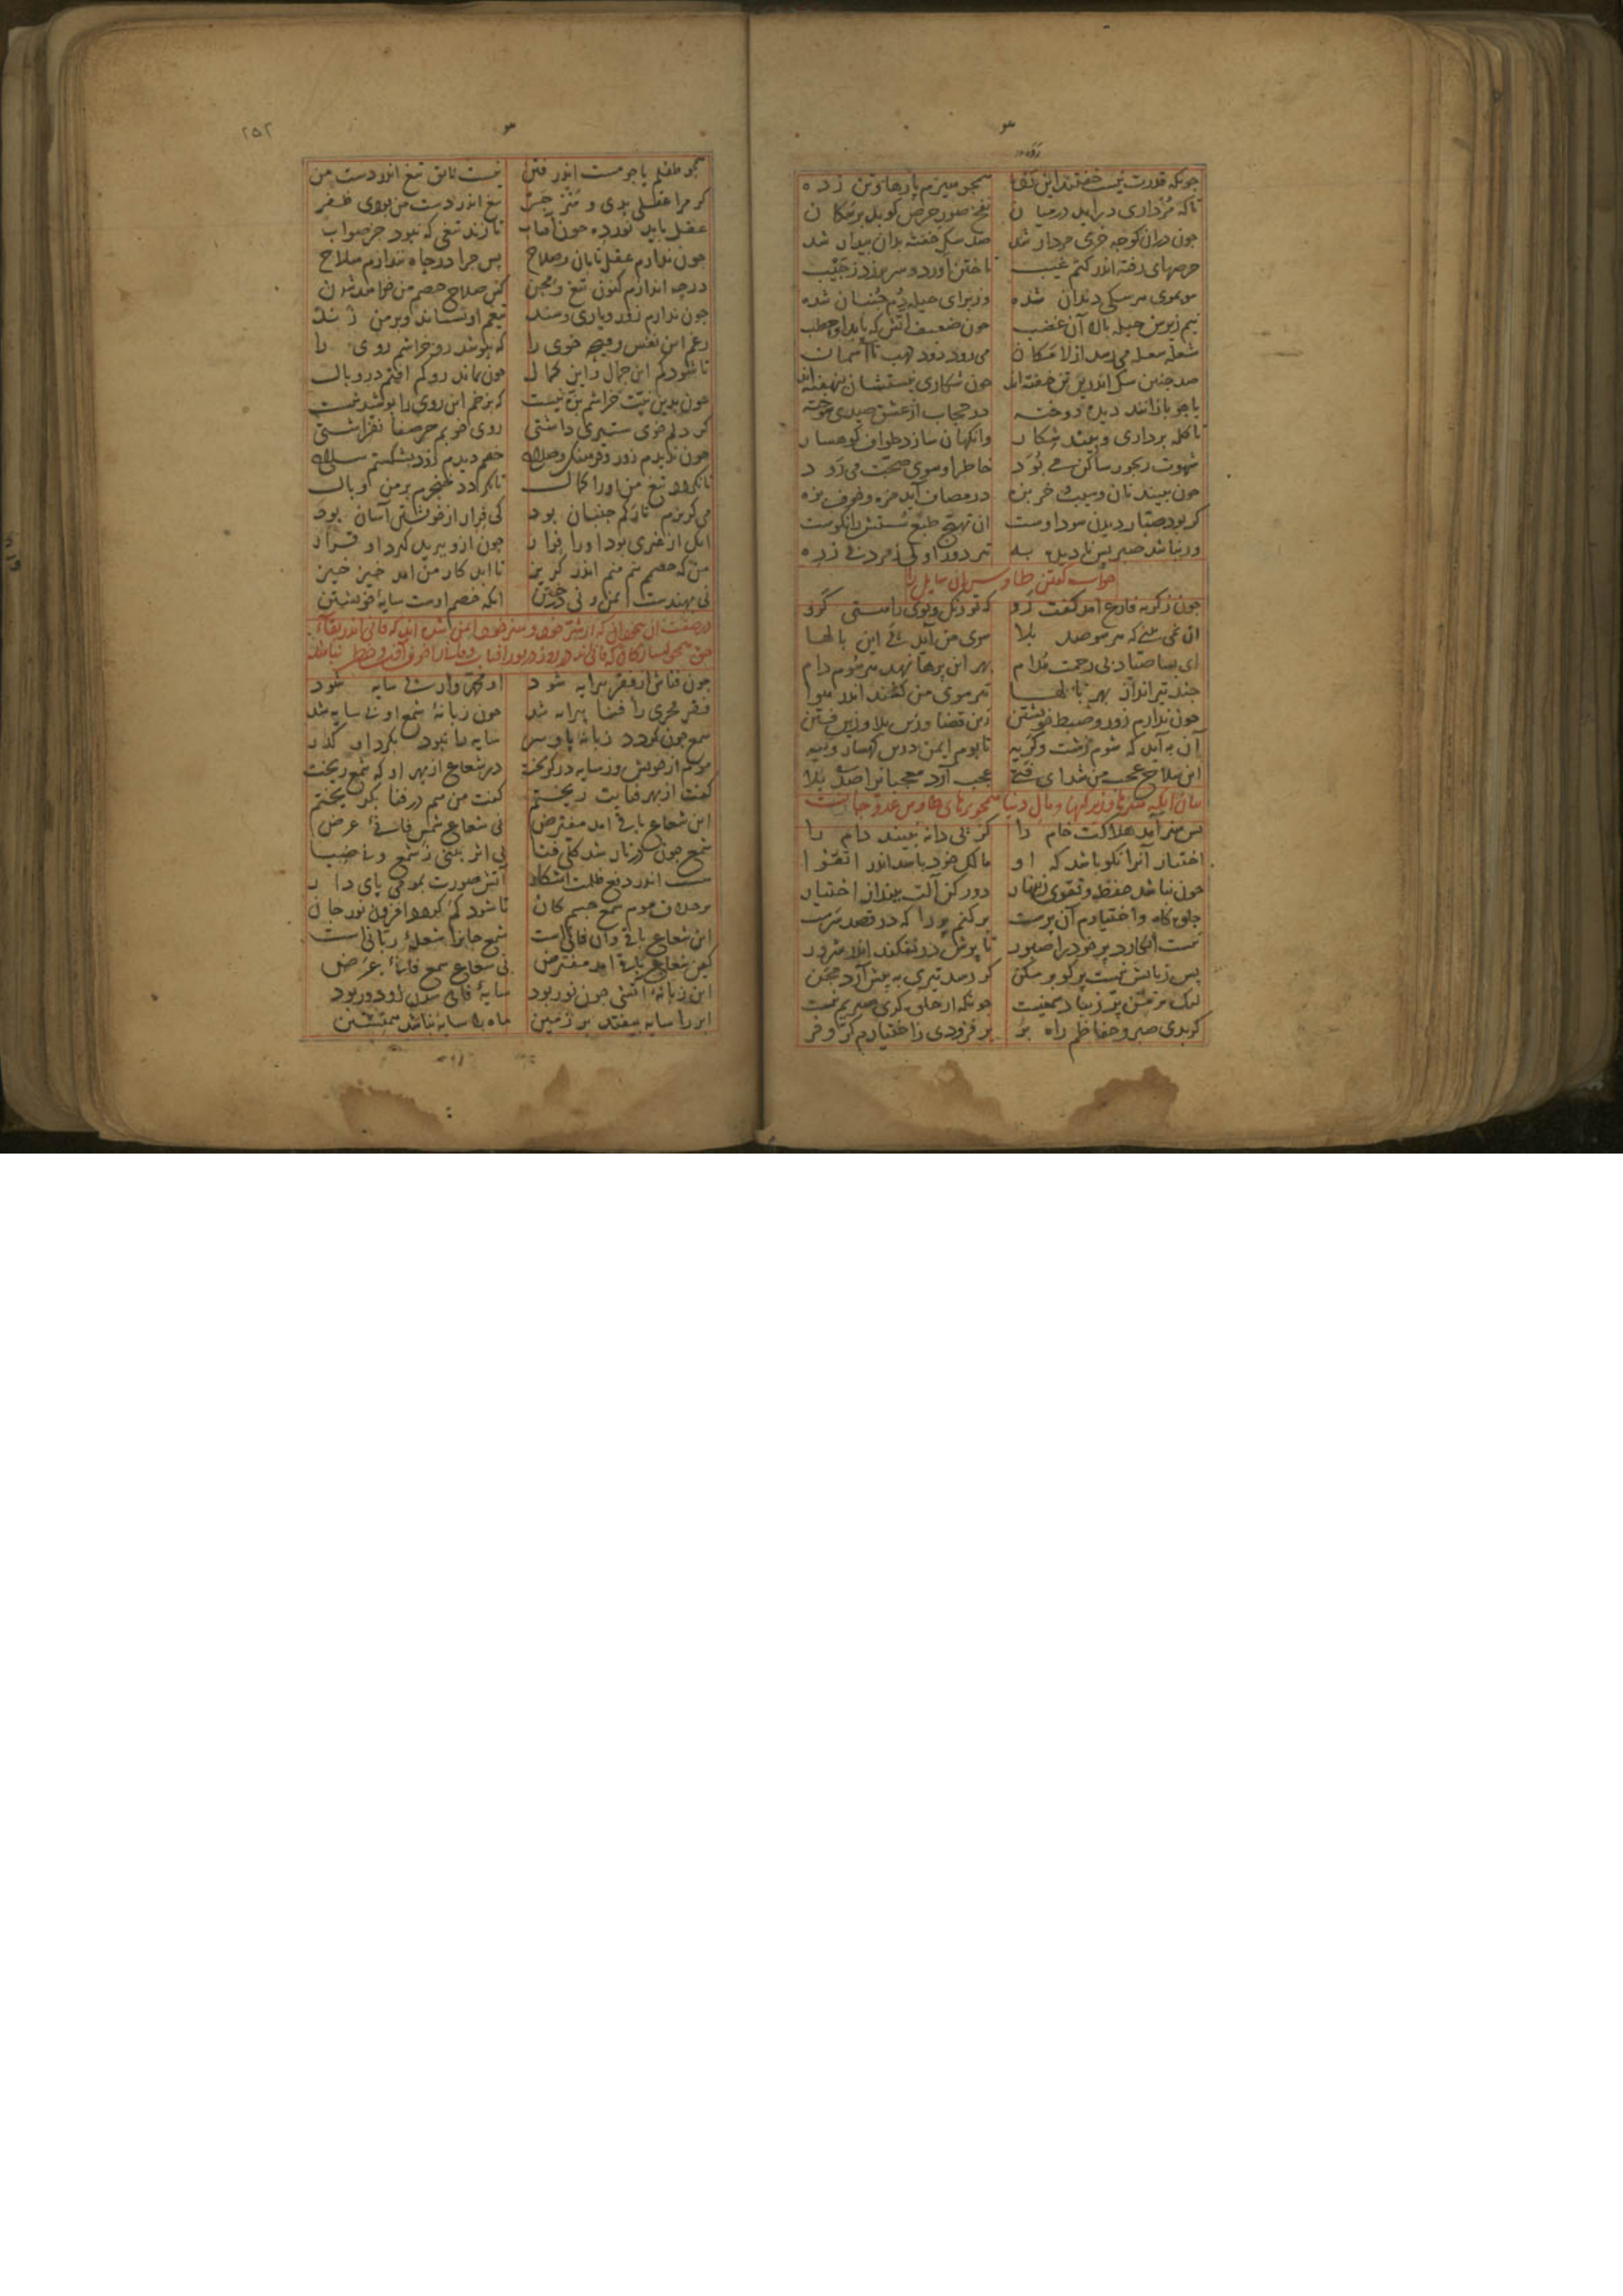 چونکه قدرت نیست خفتند این گروه همچو هیزم پارها و تن زده
تا که مرداری در آید در میان نفخ صور حرص کوبد بر سکان
چون در ان کوچه خری مردار شد صد سک خفته بدان بیدار شد
حرصهای رفته اندر کتم غیب تاختن آورد و سر برزد ز جیب
مو بموی هر سکی دندان شده وز برای حیله دم جنبان شده
نیم زیرین حیله بالا آن غضب چون ضعیف آتش که یابد او حطب
شعله شعله می رسد از لامکان می رود دود لهب تا آسمان
صد چنین سک اندرین تن خفته اند چون شکاری نیستشان بنهفته اند
یا چو بازانند دیده دوخته در حجاب از عشق صیدی سوخته
تا کله برداری و بیند شکار وانکهان سازد طواف کوهسار
شهوت رنجور ساکن می بود خاطر او سوی صحت می رود
چون ببیند نان و سیب و خربزه در مصاف آید مزه و خوف بزه
کر بود صبار دیدن سود اوست ان تهیج طبع سستش را نکوست
ور نباشد صبر پس نادیده به تیر دور اولی ز مرد بی زره
جواب کفتن طاوس آن سایل را
چون ز کریه فارغ امد کفت رو که تو رنک و بوی را هستی کرو
ان نمی بینی که هر سو صد بلا سوی من آید پی این بالها
ای بسا صیاد بی رحمت مدام بهر این پرها نهد هر سوم دام
چند تیرانداز بهر بالها تیر سوی من کشند اندر هوا
چون ندارم زور و ضبط خویشتن زین قضا و زین بلا و زین فتن
آن به آید که شوم زشت و کریه تا بوم ایمن درین کهسار و تیه
این سلاح عجب من شد ای فتی عجب آرد معجبانرا صد بلا
بیان آنکه هنرها و زیرکیها و مال دنیا همچو پرهای طاوس عدو جانست
پس هنر آمد هلاکت خام را کز پی دانه نبیند دام را
اختیار آنرا نکو باشد که او مالک خود باشد اندر اتقوا
چون نباشد حفظ و تقوی زینهار دور کن آلت بینداز اختیار
جلوه کاه و اختیارم آن پرست بر کنم پر را که در قصد سرست
نیست انکارد پر خود را صبور تا پرش در نفکند در شر و شور
پس زیانش نیست پر کو بر مکن کر رسد تیری به پیش آرد مجن
لیک بر من پر زیبا دشمنیست چونکه از جلوه کری صبریم نیست
کر بدی صبر و حفاظم راه بر بر فزودی ز اختیارم کر و فر
۲۵۲
همچو طفلم یا چو مست اندر فتن نیست لایق تیغ اندر دست من
کر مرا عقلی بدی و منزجر تیغ اندر دست من بودی ظفر
عقل باید نورده چون آفتاب تا زند تیغی که نبود جز صواب
چون ندارم عقل تابان و صلاح پس چرا در چاه نندازم سلاح
در چه اندازم کنون تیغ و مجن کین سلاح خصم من خواهد شدن
چون ندارم زور و یاری و سند تیغم او بستاند و بر من زند
رغم این نفس وقیحه خوی را که نپوشد رو خراشم روی را
تا شود کم این جمال و این کمال چون نماند رو کم افتم در وبال
چون بدین نیت خراشم بزه نیست که بزخم این روی را پوشیدنیست
کر دلم خوی ستیری داشتی روی خوبم جز صفا نفراشتی
چون ندیدم زور و فرهنک و صلاح خصم دیدم زود بشکستم سلاح
تا نکردد تیغ من او را کمال تا نکردد خنجرم بر من وبال
می کریزم تا رکم جنبان بود کی فرار از خویشتن آسان بود
آنک از غیری بود او را فرار چون ازو ببرید کیرد او قرار
من که خصمم هم منم اندر کریز تا ابد کار من امد خیز خیز
نی بهندست ایمن و نی در ختن آنکه خصم اوست سایه خویشتن
در صفت آن بیخودانی که از شر خود و هنر خود ایمن شده اند که فانی اند در بقای
حق همچو ستارکان که فانی اند در روز در نور آفتاب و فانی را خوف آفت و خطر نباشد
چون فناش از فقر پیرایه شود او محمد وار بی سایه شود
فقر فخری را فنا پیرایه شد چون زبانه شمع او بی سایه شد
شمع چون کردد زبانه پا و سر سایه را نبود بکرد او کذر
موم از خویش و ز سایه در کریخت در شعاع از بهر او که شمع ریخت
کفت او بهر فنایت ریختم کفت من هم در فنا بکریختم
این شعاع باقی آمد مفترض نی شعاع شمع فانی عرض
شمع چون در نار شد کلی فنا نی اثر بینی ز شمع و نی ضیا
هست اندر دفع ظلمت آشکار آتش صورت بمومی پای دار
بر خلاف موم شمع جسم کان تا شود کم کردد افزون نور جان
این شعاع باقی و ان فانی است شمع جانرا شعله ربانی است
این زبانه آتشی چون نور بود سایه فانی شدن زو دور بود
ابر را سایه بیفتد بر زمین ماه را سایه نباشد همنشین